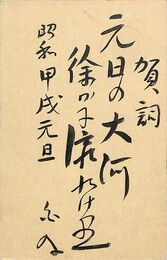 賀詞
元日の大河
徐かに流れけり
昭和甲戌元旦